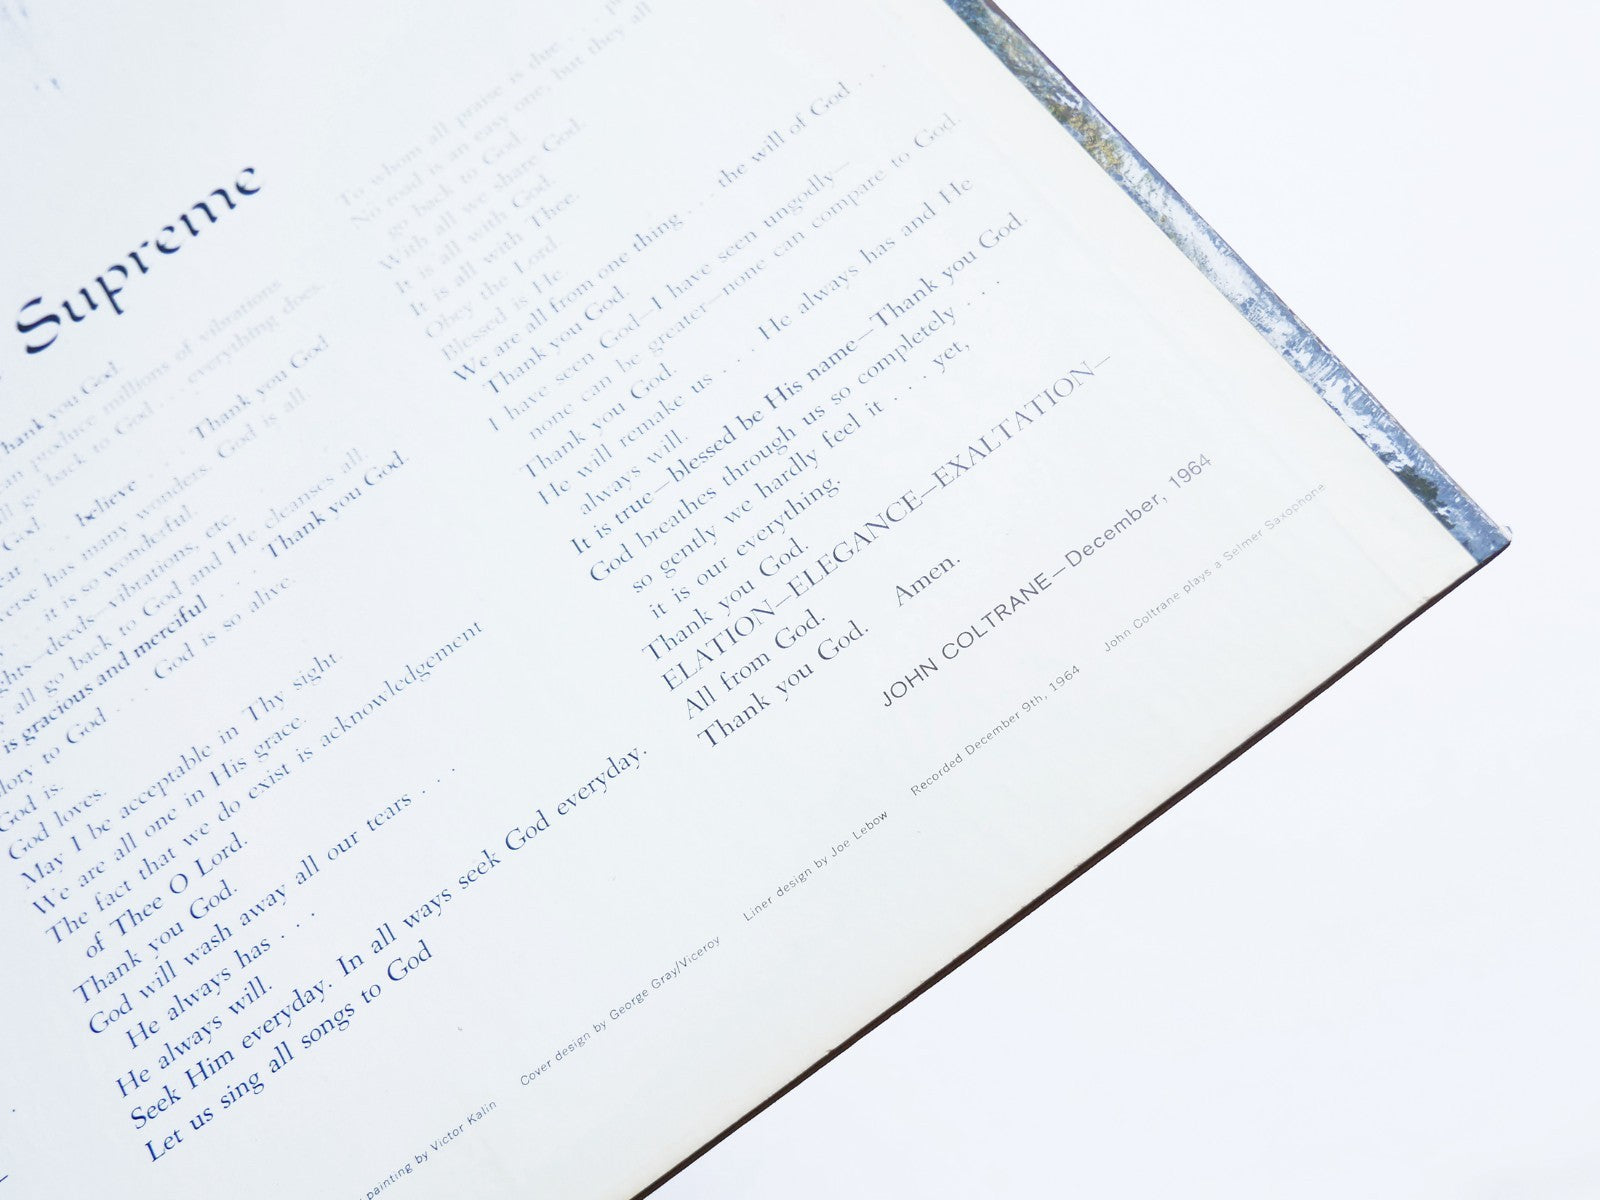 Supreme
Thank you God.
produce millions of vibrations
go back to God . . . everything does.
God.
believe . . . Thank you God
has many wonders. God is all.
it is so wonderful.
deeds—vibrations, etc.
all go back to God and He cleanses all.
is gracious and merciful . . . Thank you God.
to God . . . God is so alive.
God is.
God loves.
May I be acceptable in Thy sight.
We are all one in His grace.
The fact that we do exist is acknowledgement
of Thee O Lord.
Thank you God.
God will wash away all our tears . . .
He always has . . .
He always will.
Seek Him everyday. In all ways seek God everyday.
Let us sing all songs to God
To whom all praise is due . . .
No road is an easy one, but they all
go back to God.
With all we share God.
It is all with God.
It is all with Thee.
Obey the Lord.
Blessed is He.
We are all from one thing . . . the will of God . . .
Thank you God.
I have seen God—I have seen ungodly—
none can be greater—none can compare to God.
Thank you God.
He will remake us . . . He always has and He
always will.
It is true—blessed be His name—Thank you God.
God breathes through us so completely . . .
so gently we hardly feel it . . . yet,
it is our everything.
Thank you God.
ELATION—ELEGANCE—EXALTATION—
All from God.
Thank you God. Amen.
JOHN COLTRANE—December, 1964
painting by Victor Kalin Cover design by George Gray/Viceroy Liner design by Joe Lebow Recorded December 9th, 1964 John Coltrane plays a Selmer Saxophone